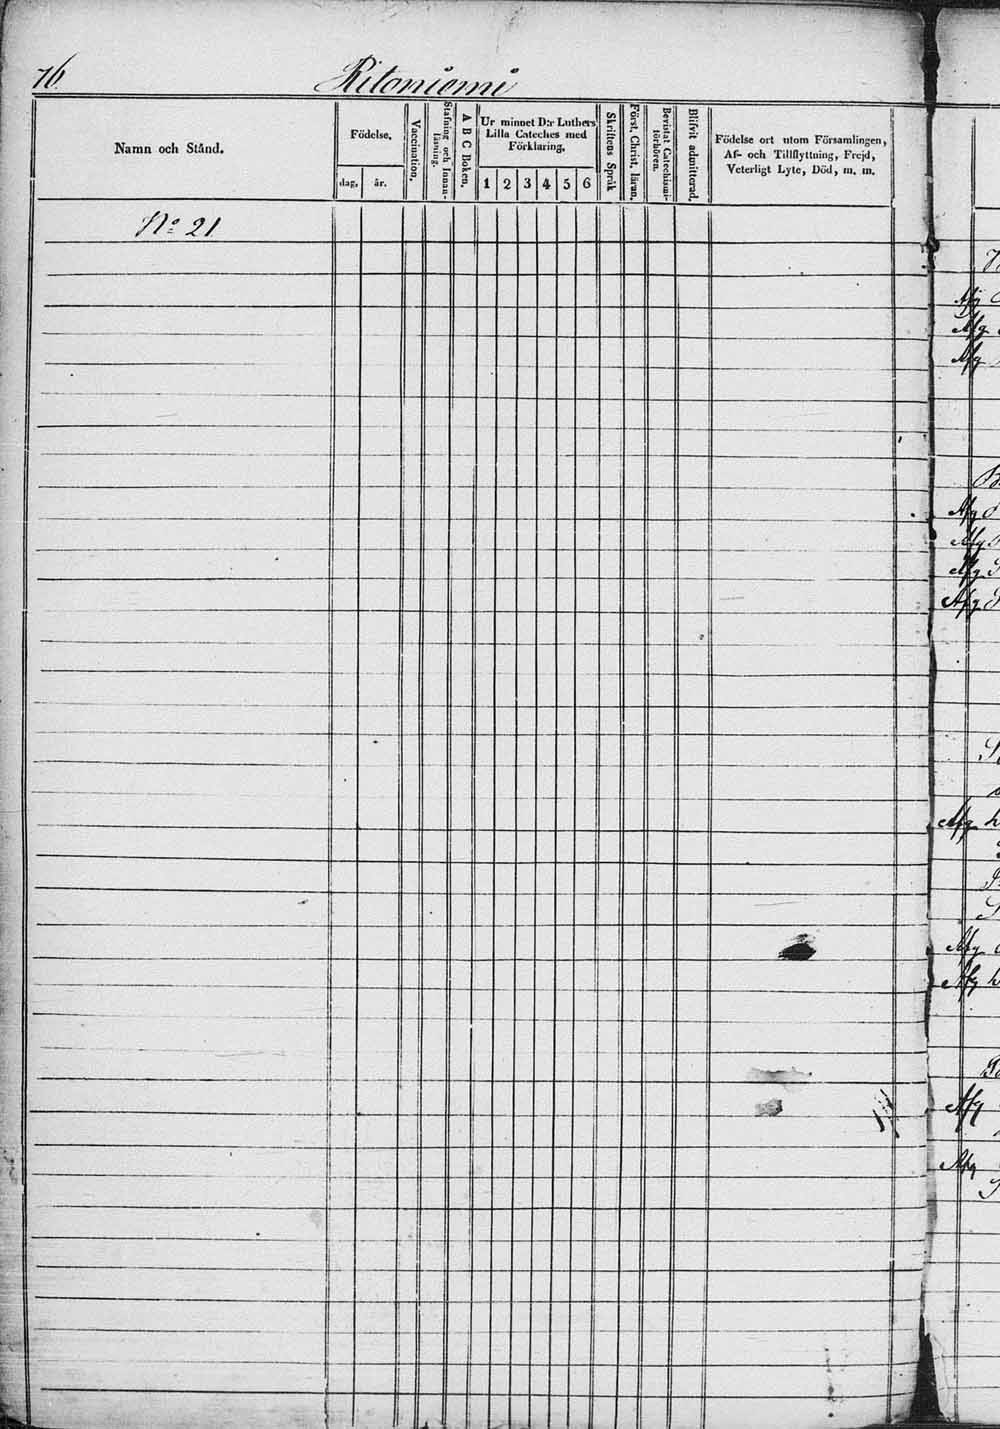 76.
Ritoniemi
Namn och Stånd.
Födelse.
dag.
år.
Vaccination.
Stafning och Innan-
läsning.
A B C Boken.
Ur minnet D:r Luthers
Lilla Cateches med
Förklaring.
1 2 3 4 5 6
Skriftens Språk
Först. Christ. läran.
Bevistat Catechismi-
förhören.
Blifvit admitterad.
Födelse ort utom Församlingen,
Af- och Tillflyttning, Frejd,
Veterligt Lyte, Död, m. m.
No 21
Afg
Afg
Afg
Afg
Afg
Afg
Afg
Afg
Afg
Afg
Afg
Afg